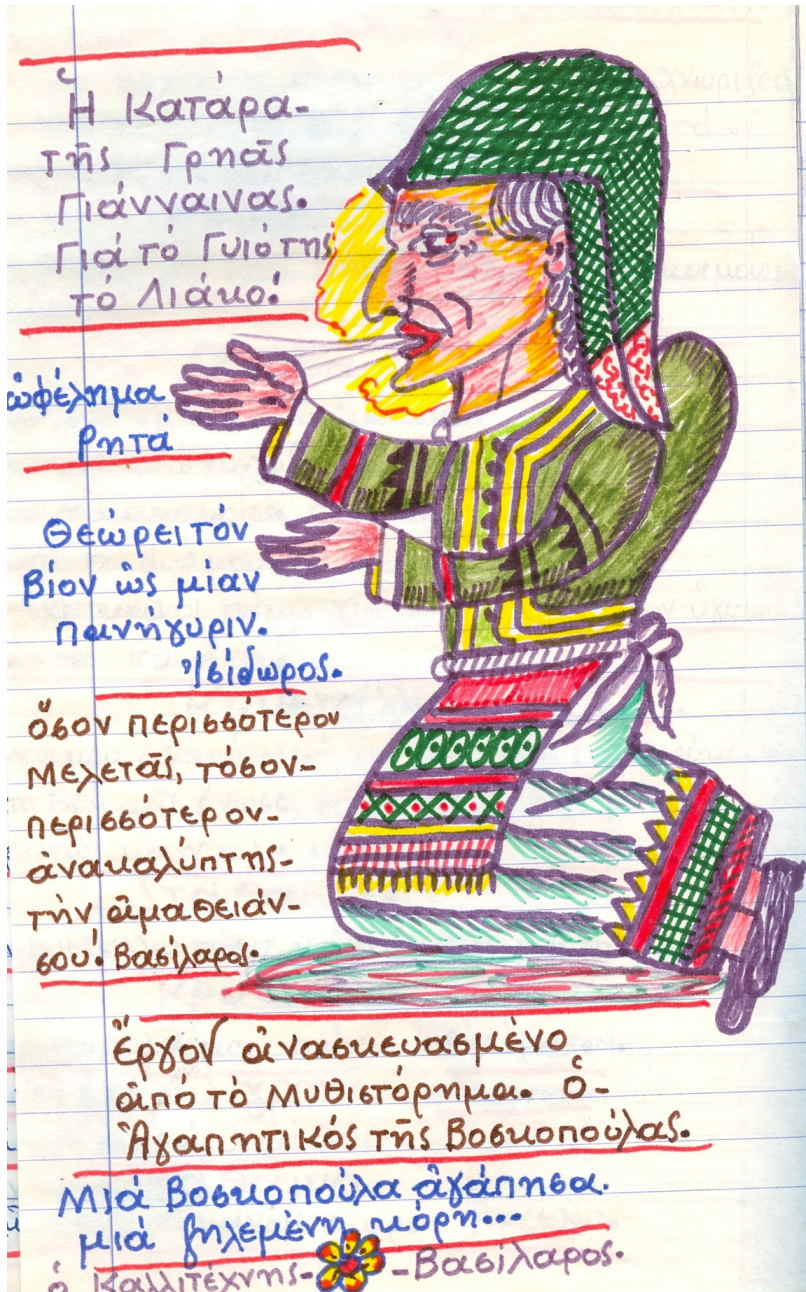 Ἡ Κατάρα-
τῆς Γρηᾶς
Γιάνναινας.
Γιά τό Γυιό της
τό Λιάκο!
ὠφέλημα
Ρητά
Θεώρει τόν
βίον ὡς μίαν
πανηγυριν.
Ἰσίδωρος.
ὅσον περισσότερον
μελετᾶς, τόσον-
περισσότερον-
ἀνακαλύπτης-
τήν ἀμαθειάν-
σου! Βασίλαρος.
Ἔργον ἀνασκευασμένο
ἀπό τό μυθιστόρημα. ὁ-
Ἀγαπητικός τῆς Βοσκοπούλας.
Μιά βοσκοπούλα ἀγάπησα.
μιά ζηλεμένη κόρη...
ὁ Καλλιτέχνης- -Βασίλαρος.